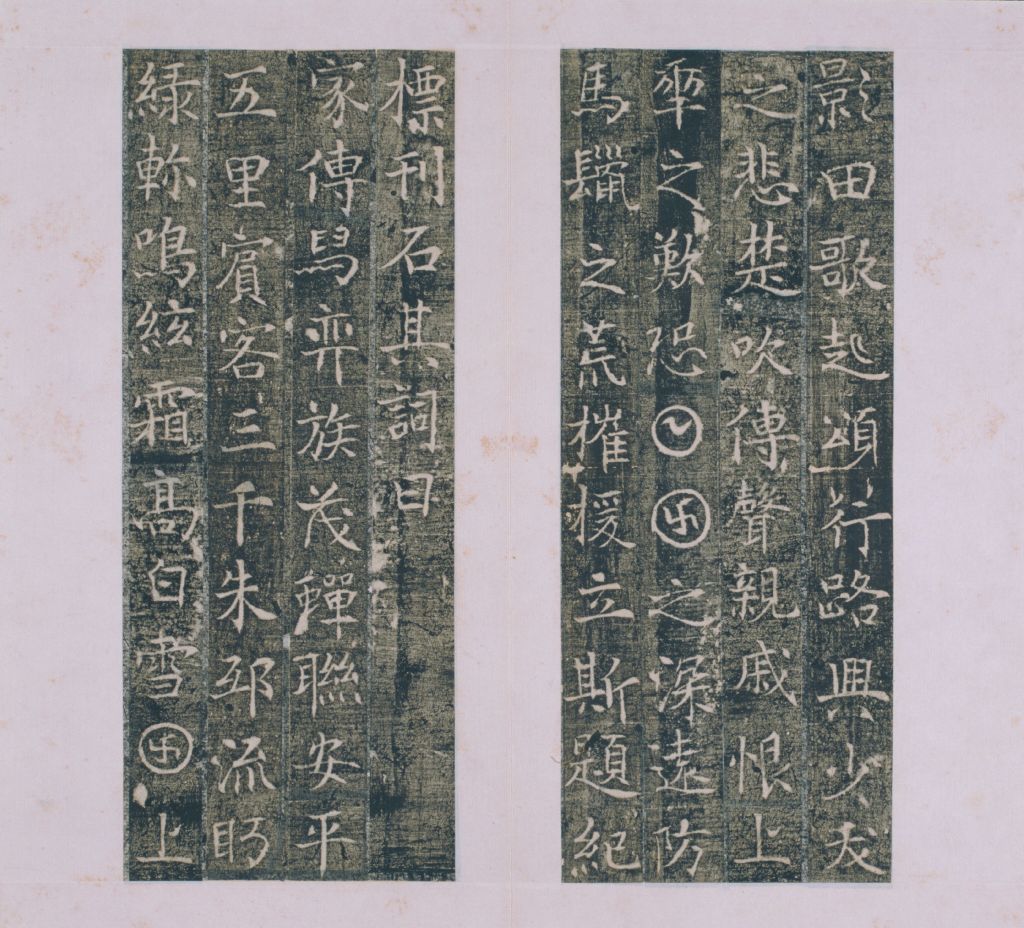 影田歌起頌行路興少
之悲楚吹傳聲親戚恨上
之歎恐𡆠囝之深遠防
馬鬛之荒摧援立斯題紀
標刊石其詞曰
家傳舄弈族茂蟬聯安平
五里賓客三千朱邸流眄
綠軫鳴絃霜高白雪囝上